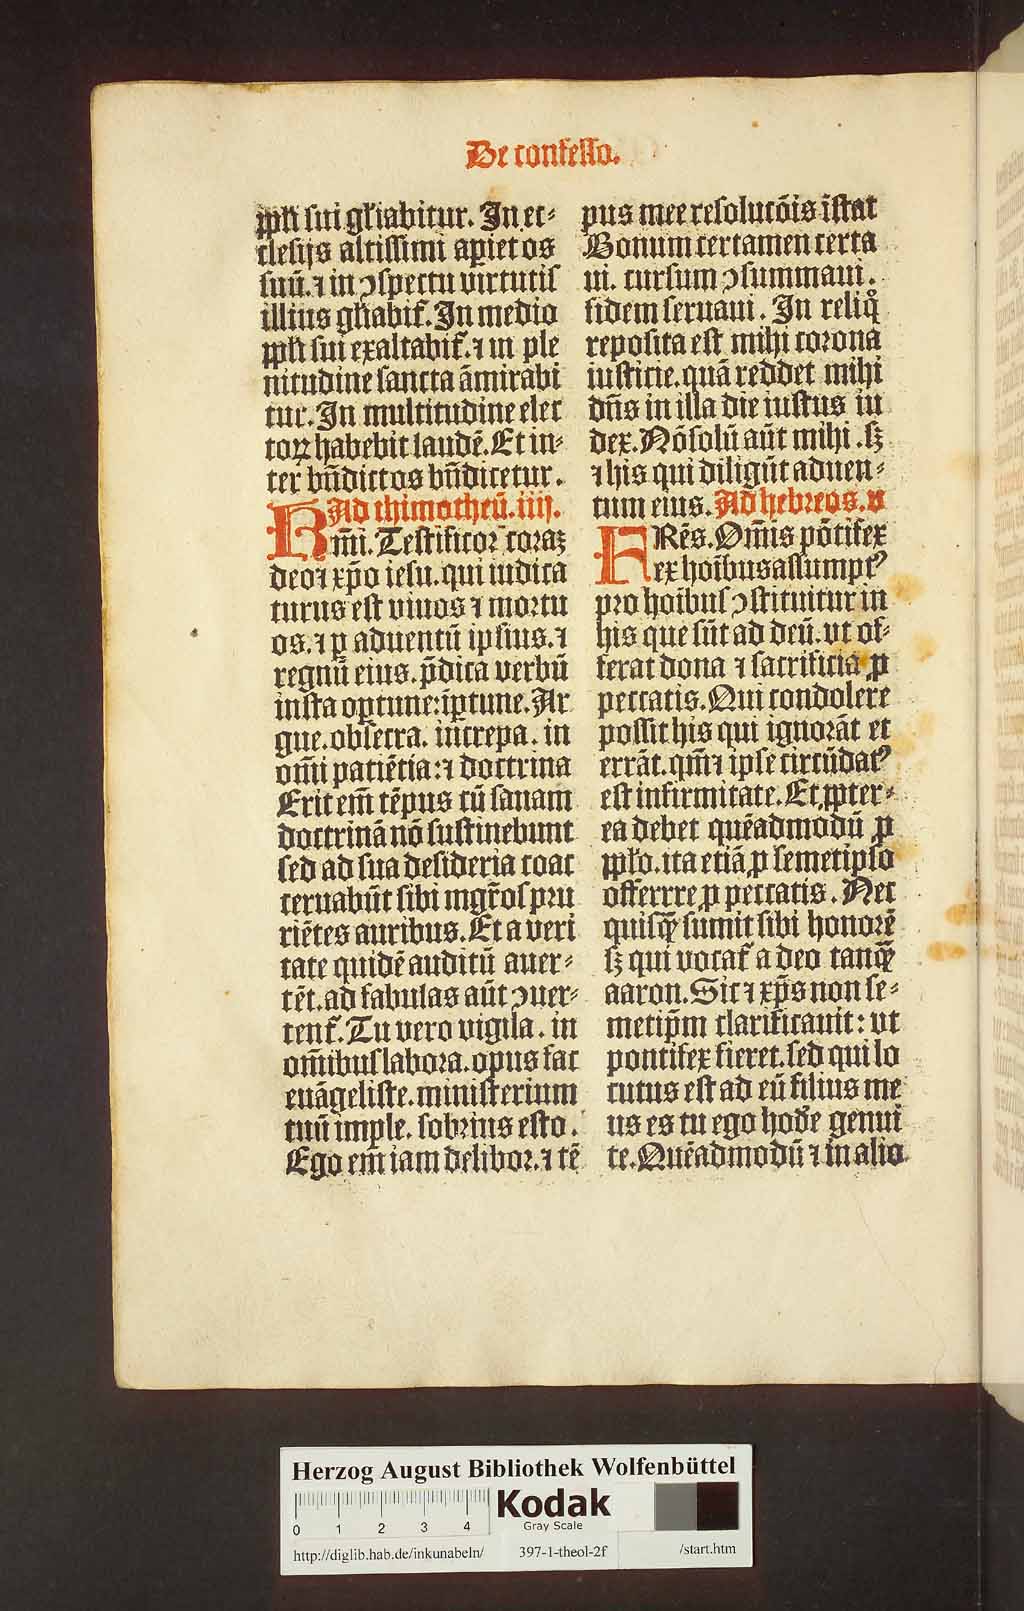 De confesso.
ppłi sui głiabitur. In ec⸗
clesijs altissimi apiet os
suū. ⁊ in ↄspectu virtutis
illius głiabiť. In medio
ppłi sui exaltabiť. ⁊ in ple
nitudine sancta āmirabi
tur. In multitudine elec
toꝝ habebit laudē. Et in⸗
ter bn̄dictos bn̄dicetur.
Ad thimotheū. iiij.
Km̄i. Testificor coraꝫ
deo ⁊ xp̄o iesu. qui iudica
turus est viuos ⁊ mortu
os. ⁊ ꝑ aduentū ipsius. ⁊
regnū eius. p̄dica verbū
insta optune: īptune. Ar
gue. obsecra. increpa. in
om̄i patiētia: ⁊ doctrina
Erit em̄ tēpus cū sanam
doctrinā nō sustinebunt
sed ad sua desideria coac
eruabūt sibi mgr̄os pru
riētes auribus. Et a veri
tate quidē auditū auer⸗
tēt. ad fabulas aūt ↄuer⸗
tenť. Tu vero vigila. in
om̄ibus labora. opus fac
euāgeliste. ministerium
tuū imple. sobrius esto.
Ego em̄ iam delibor. ⁊ tē
pus mee resolucōis īstat
Bonum certamen certa
ui. cursum ↄsummaui.
fidem seruaui. In reliqͦ
reposita est mihi corona
iusticie. quā reddet mihi
dn̄s in illa die iustus iu
dex. Nō solū aūt mihi. sꝫ
⁊ his qui diligūt aduen⸗
tum eius. Ad hebreos. v
FRēs. Om̄is pōtifex
ex hoībus assumptꝰ
pro hoībus ↄstituitur in
his que sūt ad deū. vt of⸗
ferat dona ⁊ sacrificia ꝓ
peccatis. Qui condolere
possit his qui ignorāt et
errāt. qm̄ ⁊ ipse circūdatꝰ
est infirmitate. Et ꝓpter⸗
ea debet quēadmodū ꝓ
ppło. ita etiā ꝓ semetipso
offerrre ꝓ peccatis. Nec
quisqꝫ̄ sumit sibi honorē
sꝫ qui vocať a deo tanqꝫ̄
aaron. Sic ⁊ xp̄s non se⸗
metip̄m clarificauit: vt
pontifex fieret. sed qui lo
cutus est ad eū filius me
us es tu ego hoďe genui
te. Quēadmodū ⁊ in alio
Herzog August Bibliothek Wolfenbüttel
0 1 2 3 4
Kodak
Gray Scale
http://diglib.hab.de/inkunabeln/ 397-1-theol-2f /start.htm